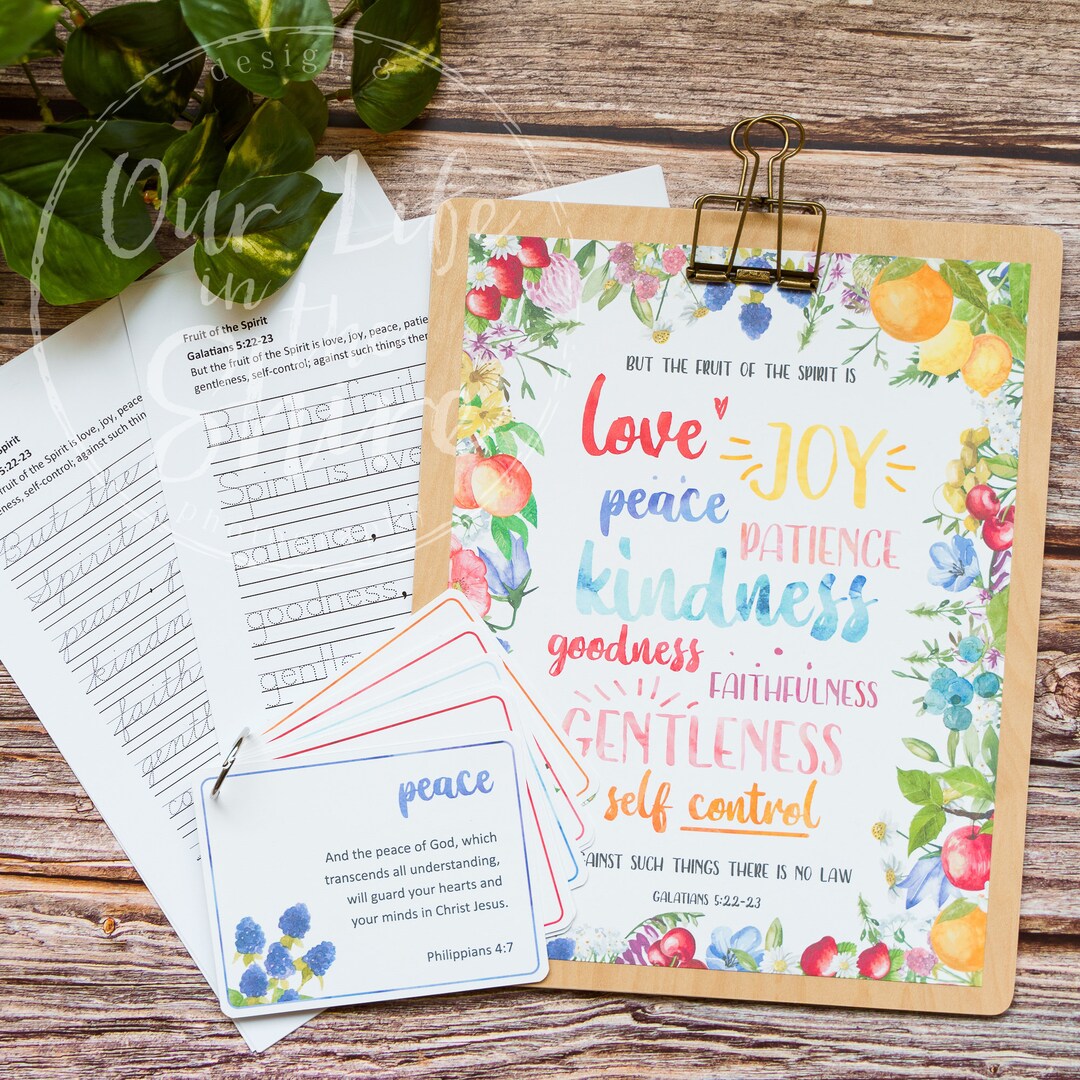 design &
Our Life
in the
Shire
Spirit
5:22-23
fruit of the Spirit is love, joy, peace
self-control; against such thin
But the
Spirit i
peace, p
kindn
faith
gentl
Fruit of the Spirit
Galatians 5:22-23
But the fruit of the Spirit is love, joy, peace, patie
gentleness, self-control; against such things ther
But the fruit
Spirit is love
patience, ki
goodness,
gentle
BUT THE FRUIT OF THE SPIRIT IS
love
JOY
peace
PATIENCE
kindness
goodness
FAITHFULNESS
GENTLENESS
self control
GAINST SUCH THINGS THERE IS NO LAW
GALATIANS 5:22-23
peace
And the peace of God, which
transcends all understanding,
will guard your hearts and
your minds in Christ Jesus.
Philippians 4:7